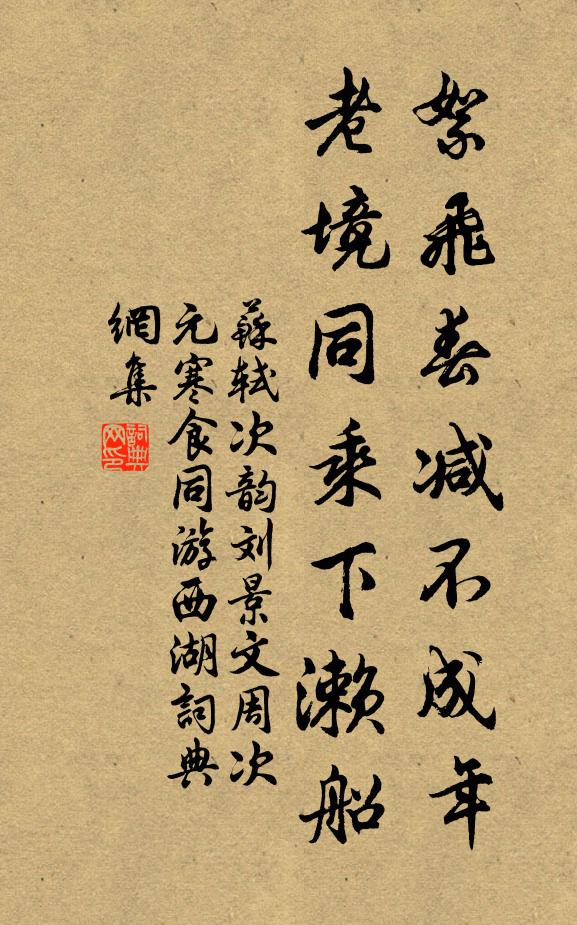 絮飛春减不成年
老境同乘下濑船
蘇軾次韵刘景文周次
元寒食同游西湖詞典
網集
詞典
网印